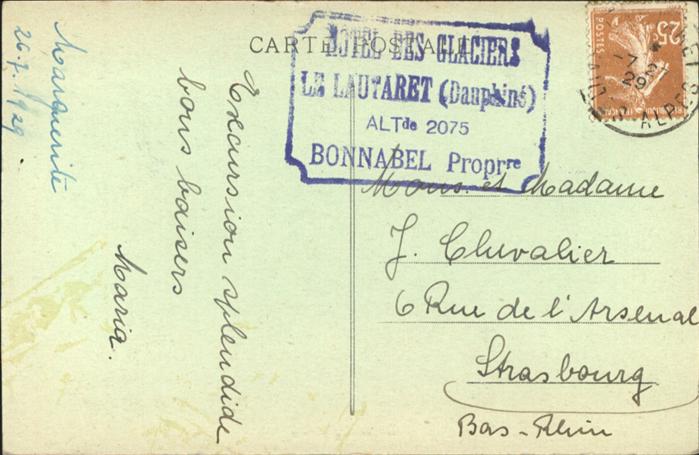 CARTE POSTALE
HOTEL DES GLACIERS
LE LAUTARET (Dauphiné)
ALTde 2075
BONNABEL Proprre
25c
POSTES
29
ALPES
Marguerite
26.7.1929
Excursion splendide
bons baisers
Maria.
Mons. et Madame
J. Chevalier
6 Rue de l'Arsenal
Strasbourg
Bas-Rhin